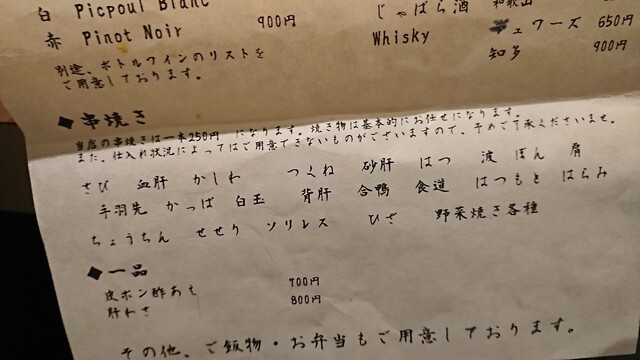 白 Picpoul Blanc
赤 Pinot Noir 900円
別途、ボトルワインのリストを
ご用意しております。
じゃばら酒 和歌山
Whisky デュワーズ 650円
知多 900円
◆串焼き
当店の串焼きは一本250円 になります。焼き物は基本的にお任せになります。
また、仕入れ状況によってはご用意できないものがございますので、予めご了承くださいませ。
さび 血肝 かしわ つくね 砂肝 はつ 波 ぼん 肩
手羽先 かっぱ 白玉 背肝 合鴨 食道 はつもと はらみ
ちょうちん せせり ソリレス ひざ 野菜焼き各種
◆一品
皮ポン酢あえ 700円
肝わさ 800円
その他、ご飯物・お弁当もご用意しております。